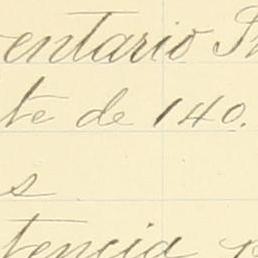 entario
te de 140.
s
tencia